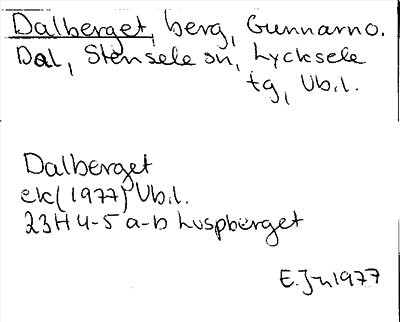 Dalberget, berg, Gunnarno.
Dal, Stensele sn, Lycksele
tg, Vb.l.
Dalberget
ek (1977) Vb.l.
23H 4-5 a-b Luspberget
E.Jn 1977